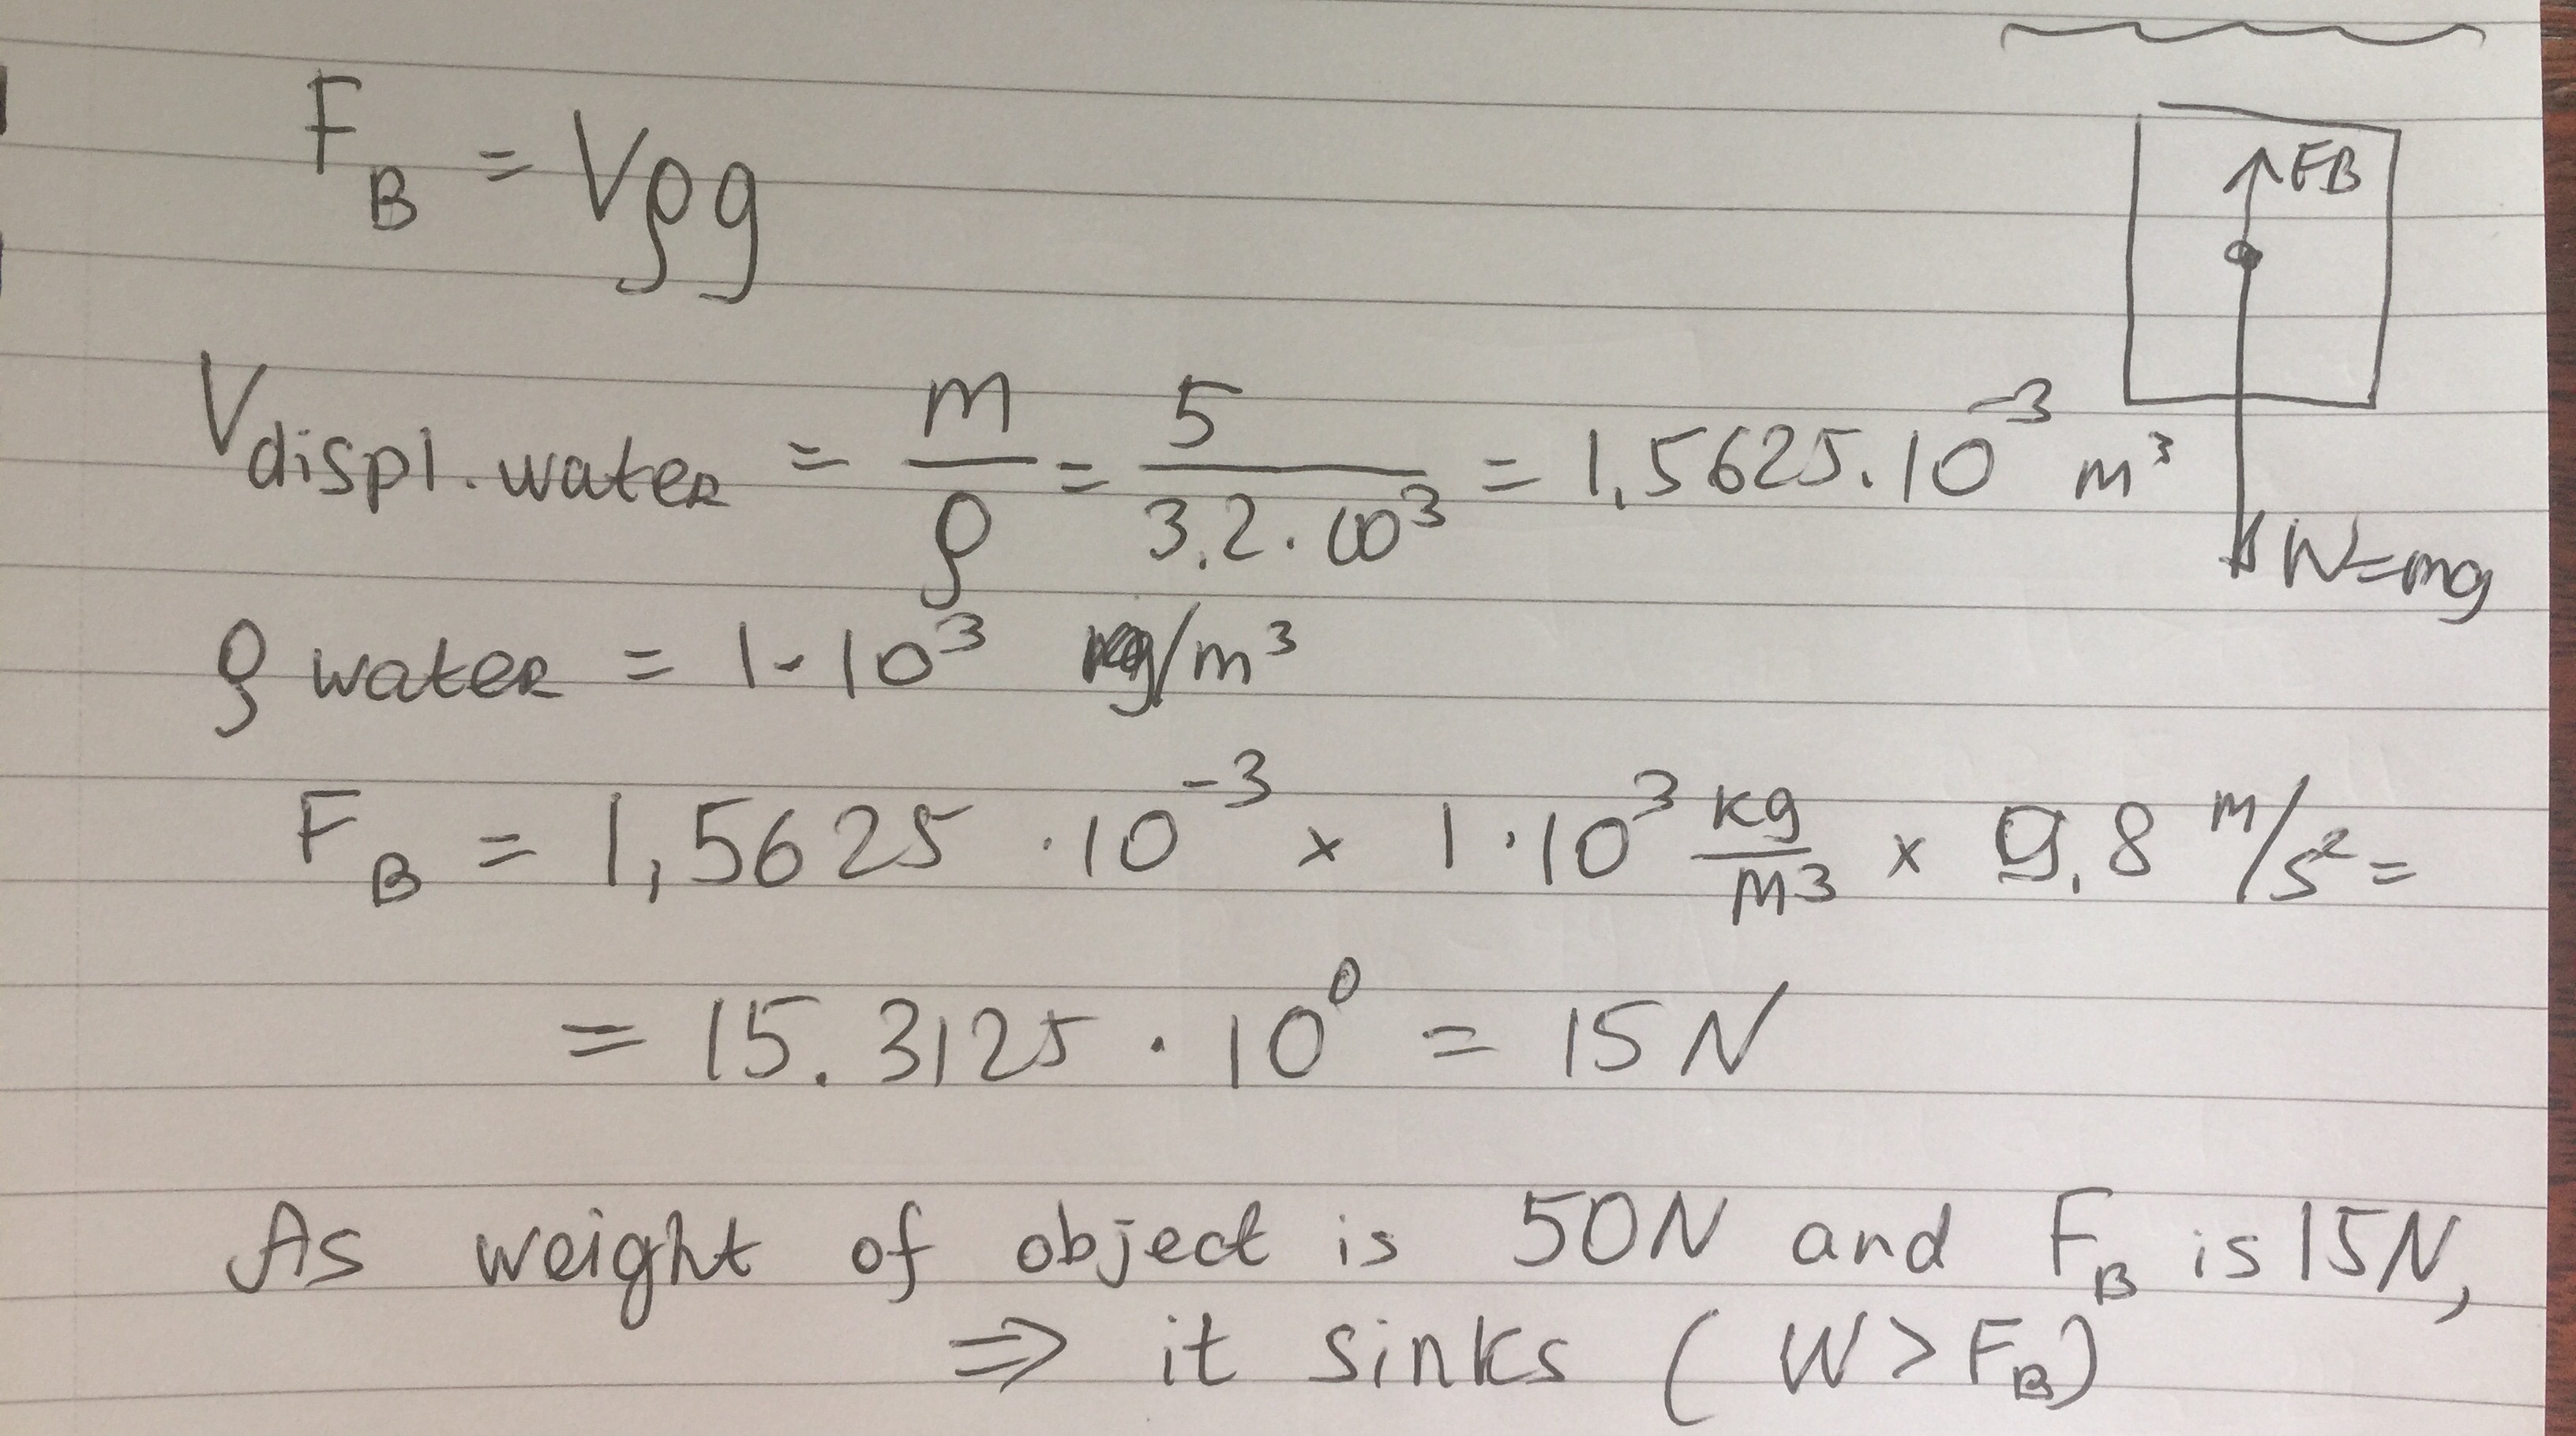 F_B = Vρg
↑ FB
V displ. water = m/ρ = 5/(3.2 · 10³) = 1,5625 · 10⁻³ m³
W=mg
ρ water = 1 · 10³ kg/m³
F_B = 1,5625 · 10⁻³ × 1 · 10³ kg/m³ × 9,8 m/s² =
= 15.3125 · 10⁰ = 15 N
As weight of object is 50N and F_B is 15N,
⇒ it sinks ( W > F_B )